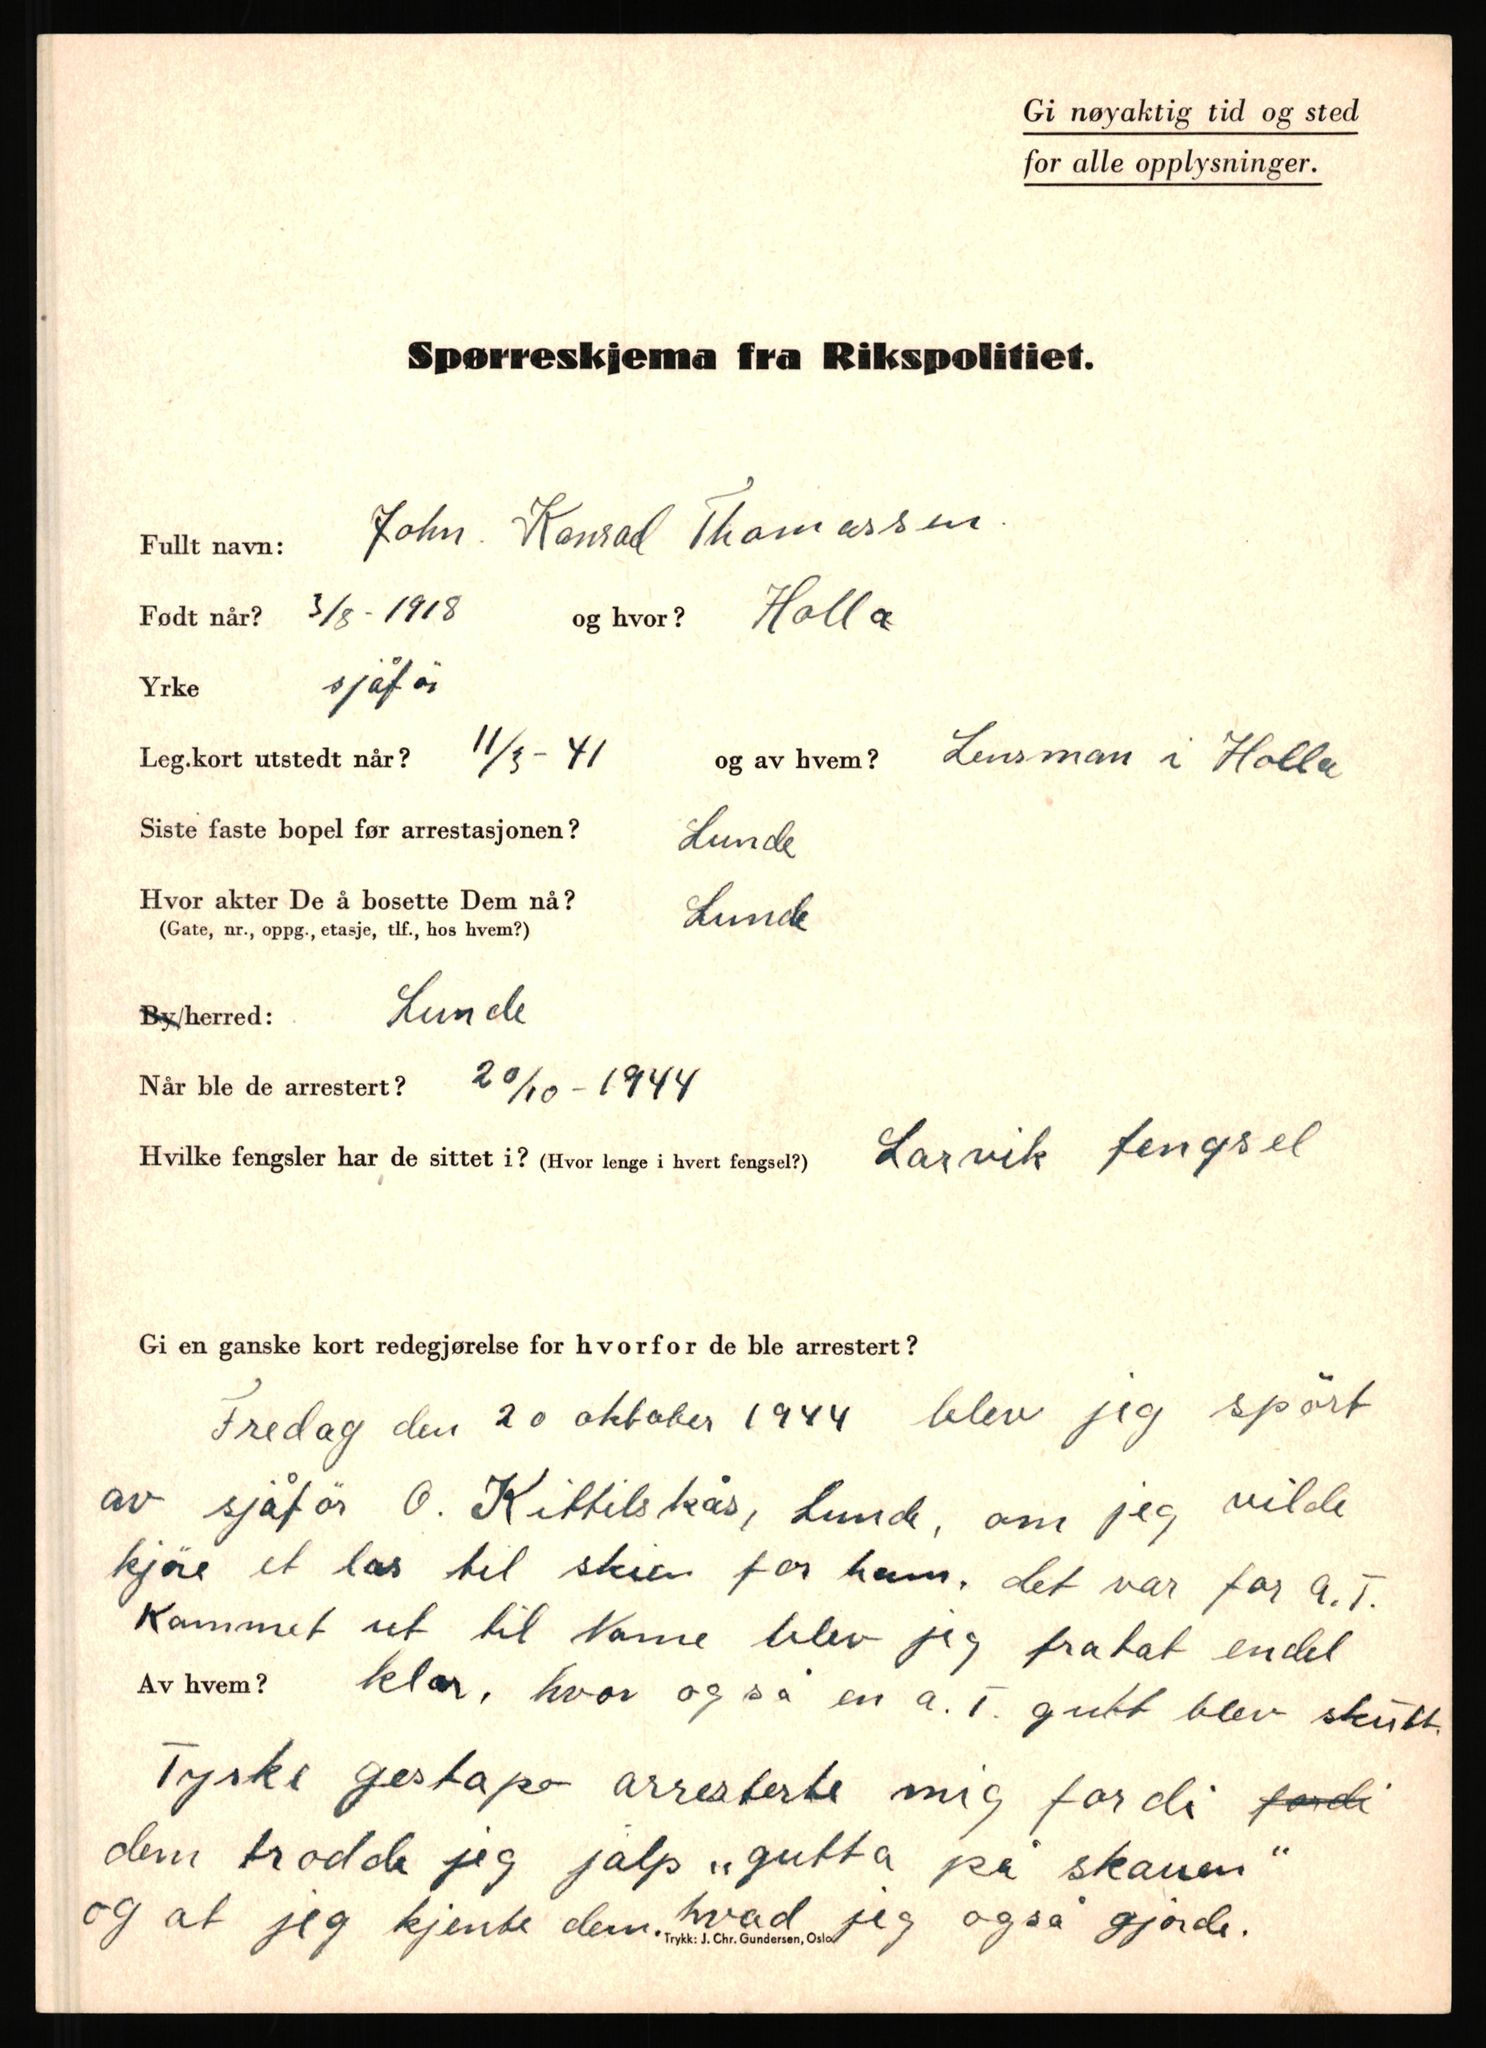 Gi nøyaktig tid og sted
for alle opplysninger.
Spørreskjema fra Rikspolitiet.
Fullt navn: John. Konrad Thomassen.
Født når? 3/8 - 1918 og hvor? Holla
Yrke sjåför
Leg.kort utstedt når? 11/3 - 41 og av hvem? Lensman i Holla
Siste faste bopel før arrestasjonen? Lunde
Hvor akter De å bosette Dem nå? Lunde
(Gate, nr., oppg., etasje, tlf., hos hvem?)
By/herred: Lunde
Når ble de arrestert? 20/10 - 1944
Hvilke fengsler har de sittet i? (Hvor lenge i hvert fengsel?) Larvik fengsel
Gi en ganske kort redegjørelse for hvorfor de ble arrestert?
Fredag den 20 oktober 1944 blev jeg spört
av sjåför O. Kittilskås, Lunde, om jeg vilde
kjöre et las til skien for ham. det var for A.T.
Kommet ut til Nome blev jeg fratat endel
Av hvem? klær, hvor også en a.T. gutt blev skutt.
Tyske gestapo arresterte mig fordi fordi
dem trodde jeg jalp „gutta på skauen"
og at jeg kjente dem. hvad jeg også gjörde.
Trykk: J. Chr. Gundersen, Oslo